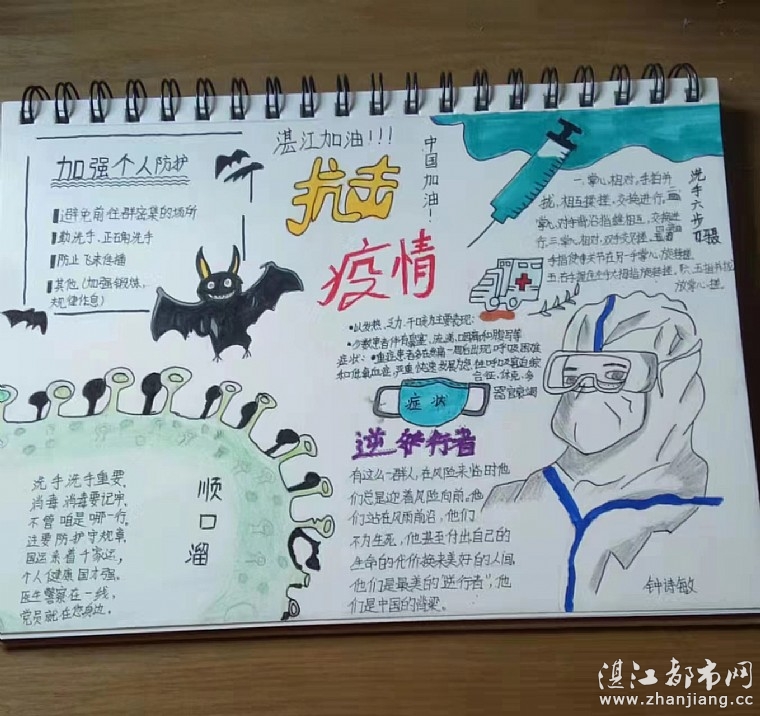 湛江加油!!!
中国加油!
抗击
疫情
加强个人防护
避免前往群密集的场所
勤洗手、正确洗手
防止飞沫传播
其他(加强锻炼、
规律作息)
洗手六步
一.掌心相对,手指并
拢,相互揉搓,交换进行,二
掌心对手背沿指缝相互,交换进
行,三.掌心相对,双手交叉
五.右手握住左手大拇指旋转搓,
放掌心搓
以发热、乏力、干咳为主要表现;
少数患者伴有鼻塞、流涕、咽痛和腹泻等
症状:
重症患者多在发病一周后出现呼吸困难
和低氧血症,严重
症状
逆行者
有这么一群人,在风险来临时他
们总是逆着风险向前,他
们站在风雨前沿,他们
不为生死,他甚至付出自己的
生命的代价换来美好的人间,
他们是最美的"逆行者",他
们是中国的脊梁。
顺口溜
洗手洗手重要,
消毒消毒要记牢,
不管咱是哪一行,
注要防护守规章,
国运系着千家运,
个人健康国才强。
医生警察在一线,
党员就在您身边。
钟诗敏
湛江都市网
www.zhanjiang.cc